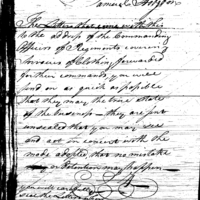 Samuel Hodgdon
The Letters that come with this
to the address of the Commanding
Officers of Regiments covering
Invoices of Clothing forwarded
for their commands, you will
send on as quick as possible
that they may the true state
of the business — they are put
unsealed that you may see
and act in concert with the
mode adopted, that no mistake
or detention may happen